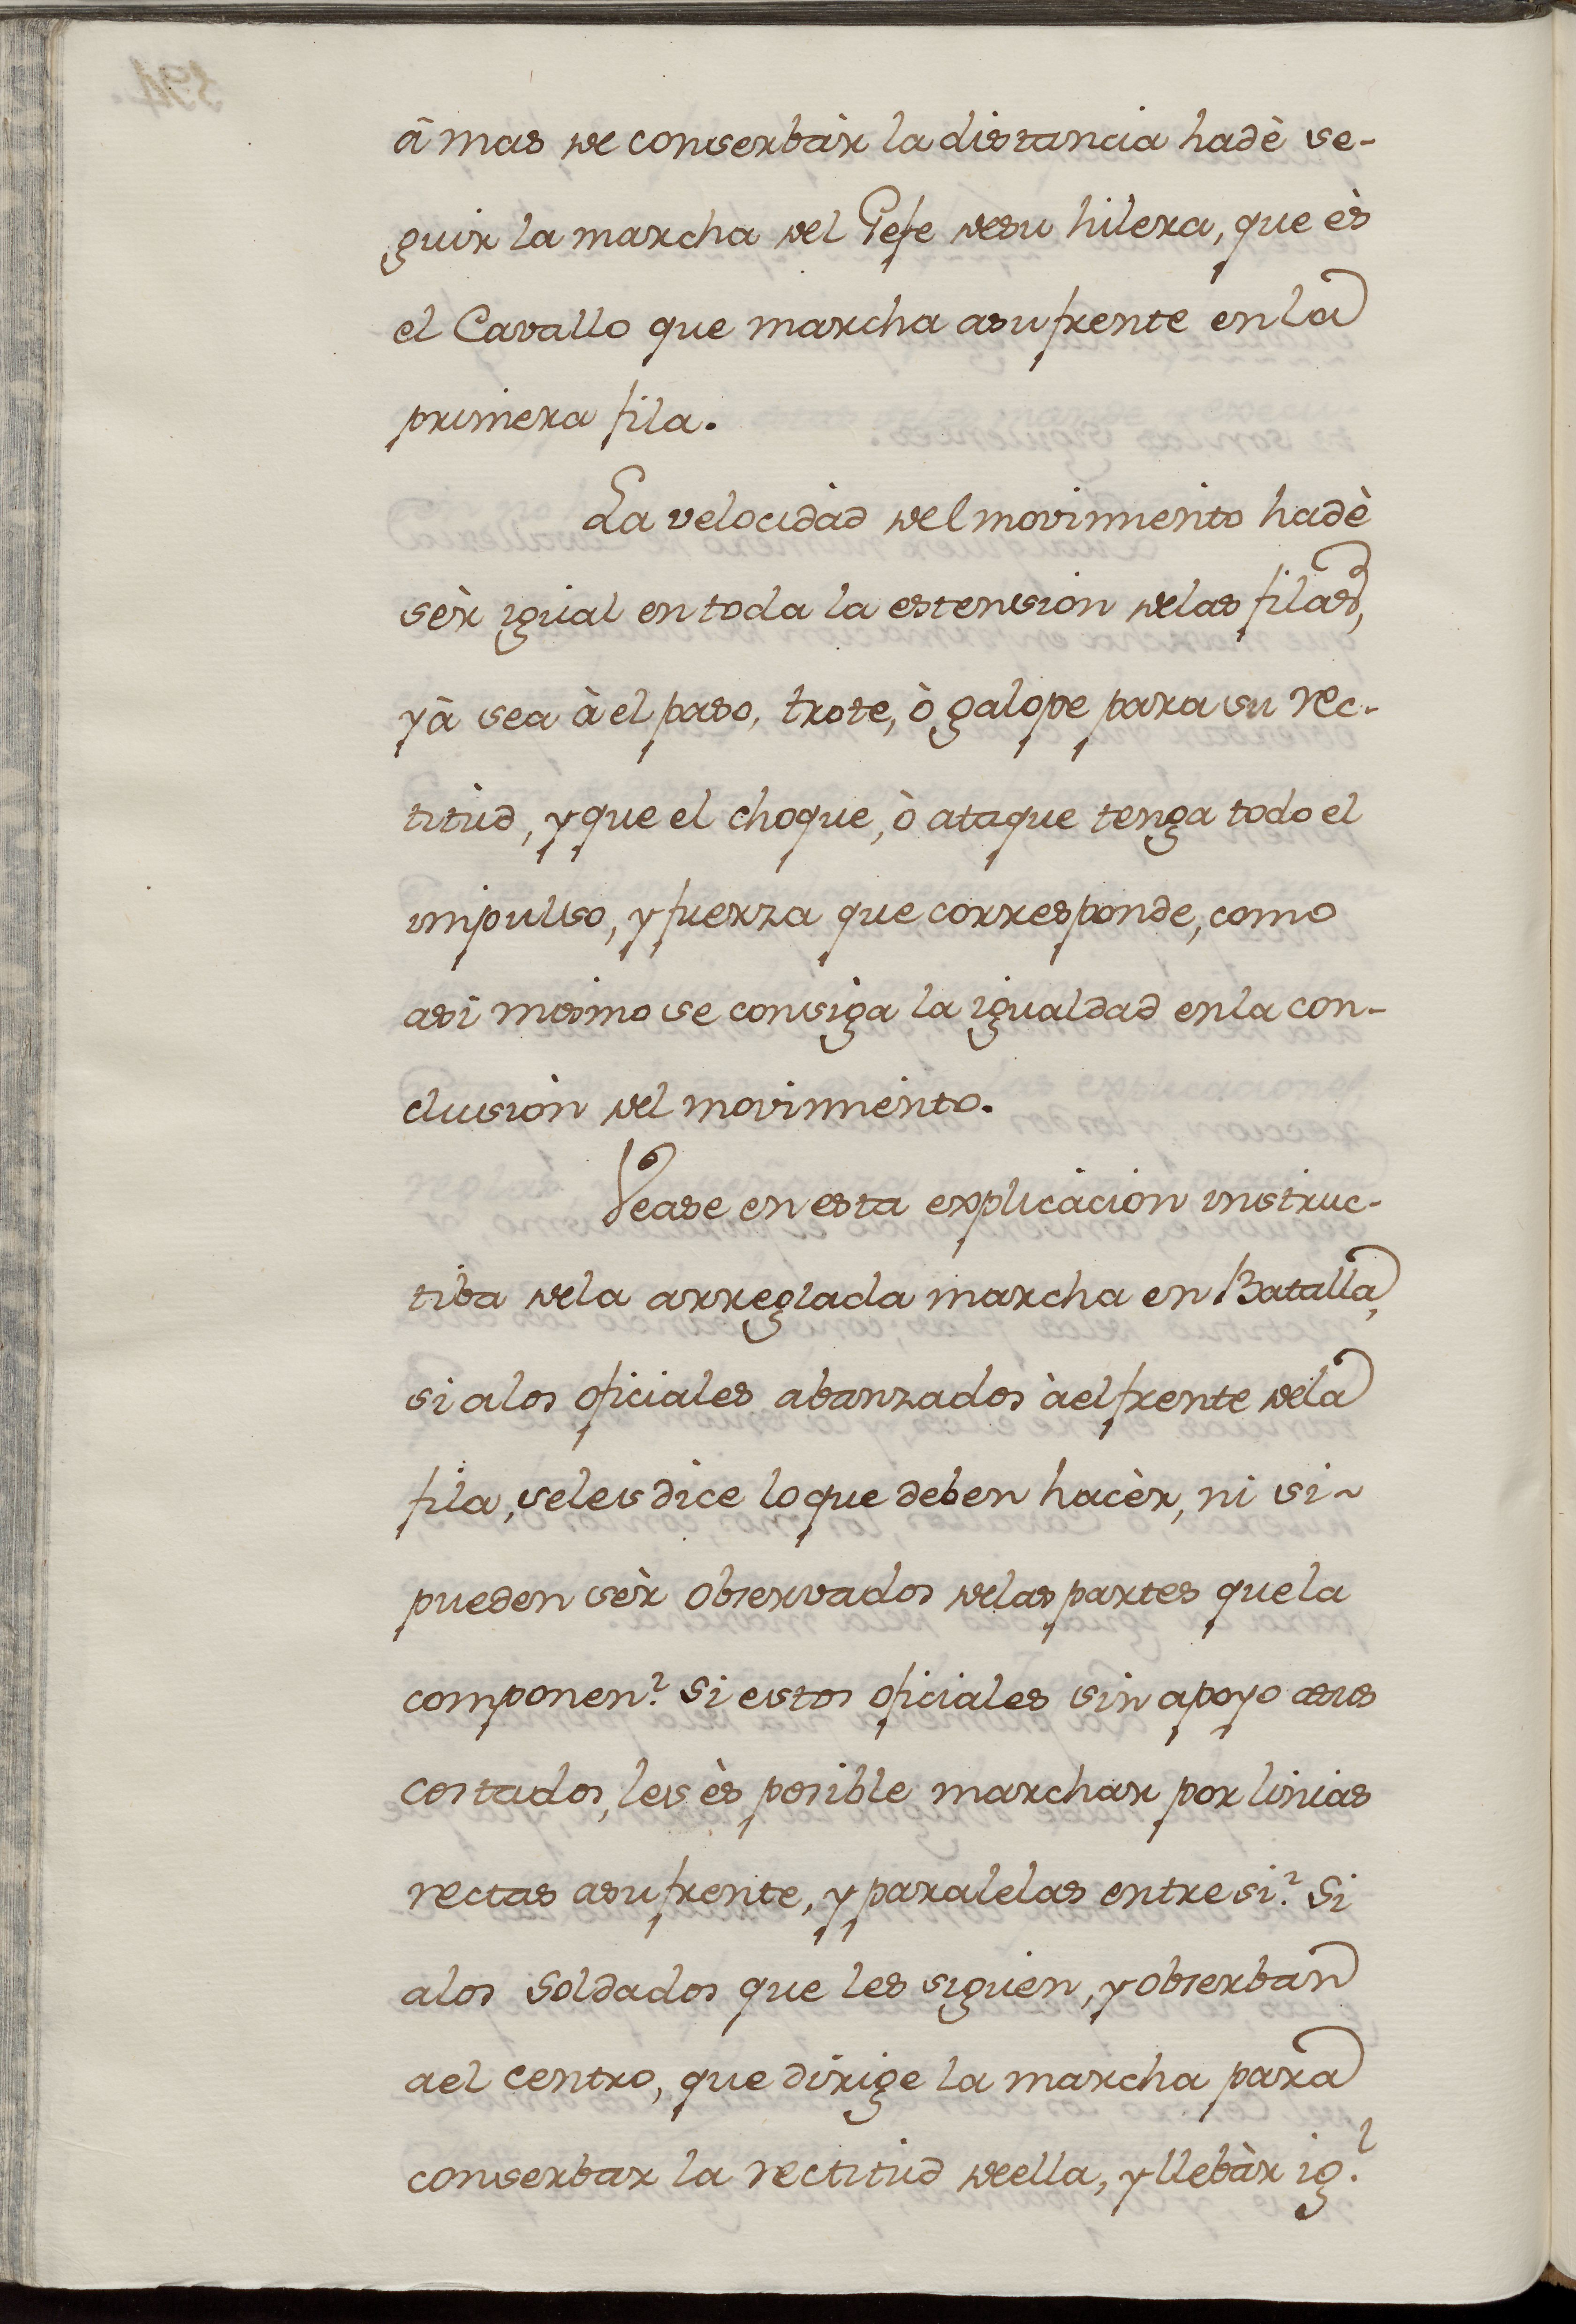 â mas de conserbàr la distancia hadè se-
guir la marcha del Gefe desu hilera, que ès
el Cavallo que marcha asu frente en la
primera fila.
La velocidad del movimiento hadè
sèr igual en toda la estension delas filas,
yà sea à el paso, trote, ò galope para su rec-
titud, y que el choque, ò ataque tenga todo el
impulso, y fuerza que corresponde, como
asi mismo se consiga la igualdad en la con-
clusiòn del movimiento.
Vease en esta explicacion instruc-
tiba dela arreglada marcha en Batalla,
si alos oficiales abanzados àel frente dela
fila, seles dice lo que deben hacèr, ni si
pueden sèr observados delas partes que la
componen? Si estos oficiales sin apoyo asus
costados, les ès posible marchar por linias
rectas asu frente, y paralelas entre si? Si
alos Soldados que les siguen, y obserban
ael centro, que dirige la marcha para
conserbar la rectitud deella, y llebàr ig.l